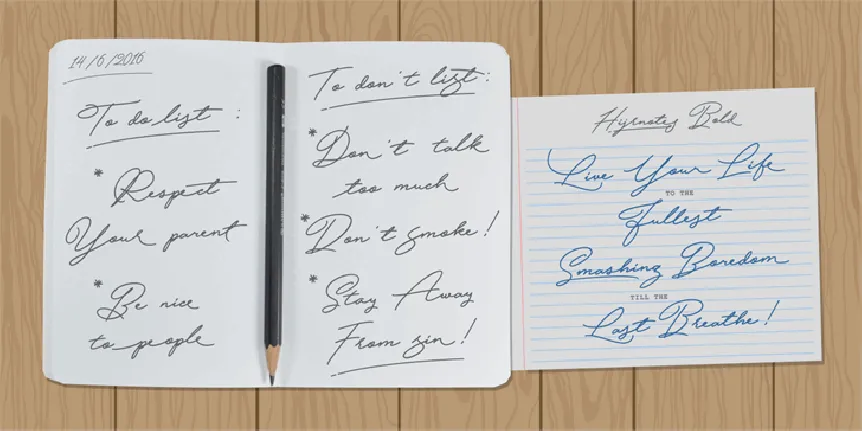 14/6/2016
To do list :
* Respect
Your parent
* Be nice
to people
To don't list :
* Don't talk
too much
* Don't smoke!
* Stay Away
From sin!
Hypnotes Bold
Live Your Life
TO THE
Fullest
Smashing Boredom
TILL THE
Last Breathe!